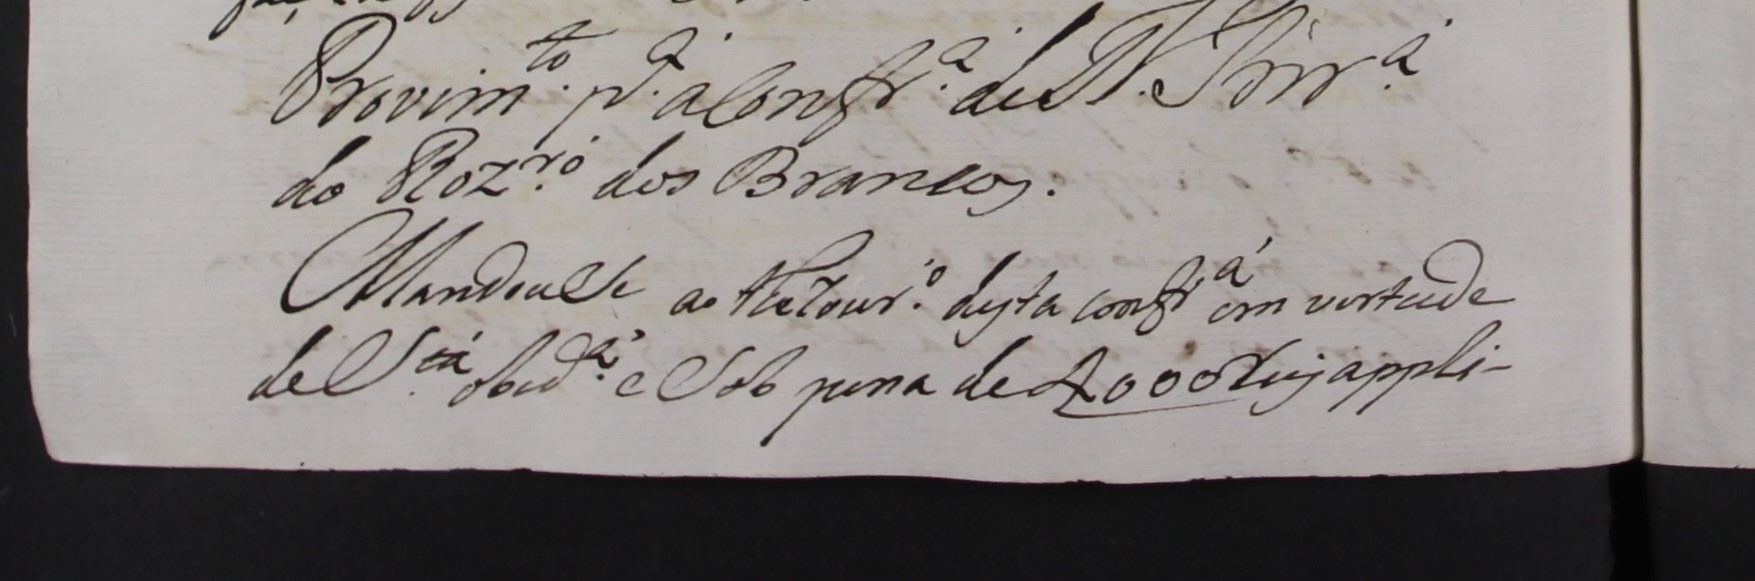 Provim.to p.a a Confr.a de N. Snr.a
do Roz.ro dos Brancos.
Mandouse ao Thezour.o desta confr.a em vertude
de S.ta obed.a e Sob pena de 4000 reis appli-